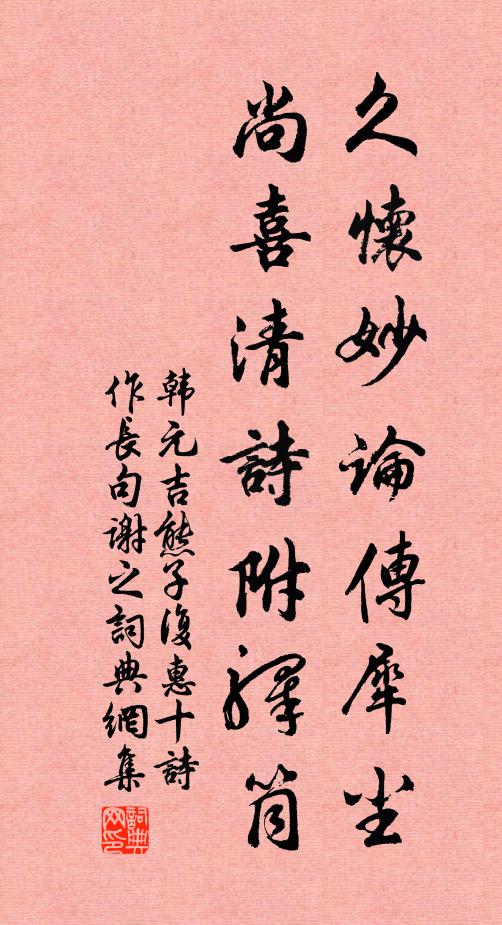 久懷妙論傳犀尘
尚喜清詩附驛筒
韓元吉熊子復惠十詩
作長句謝之詞典網集
詞典网印